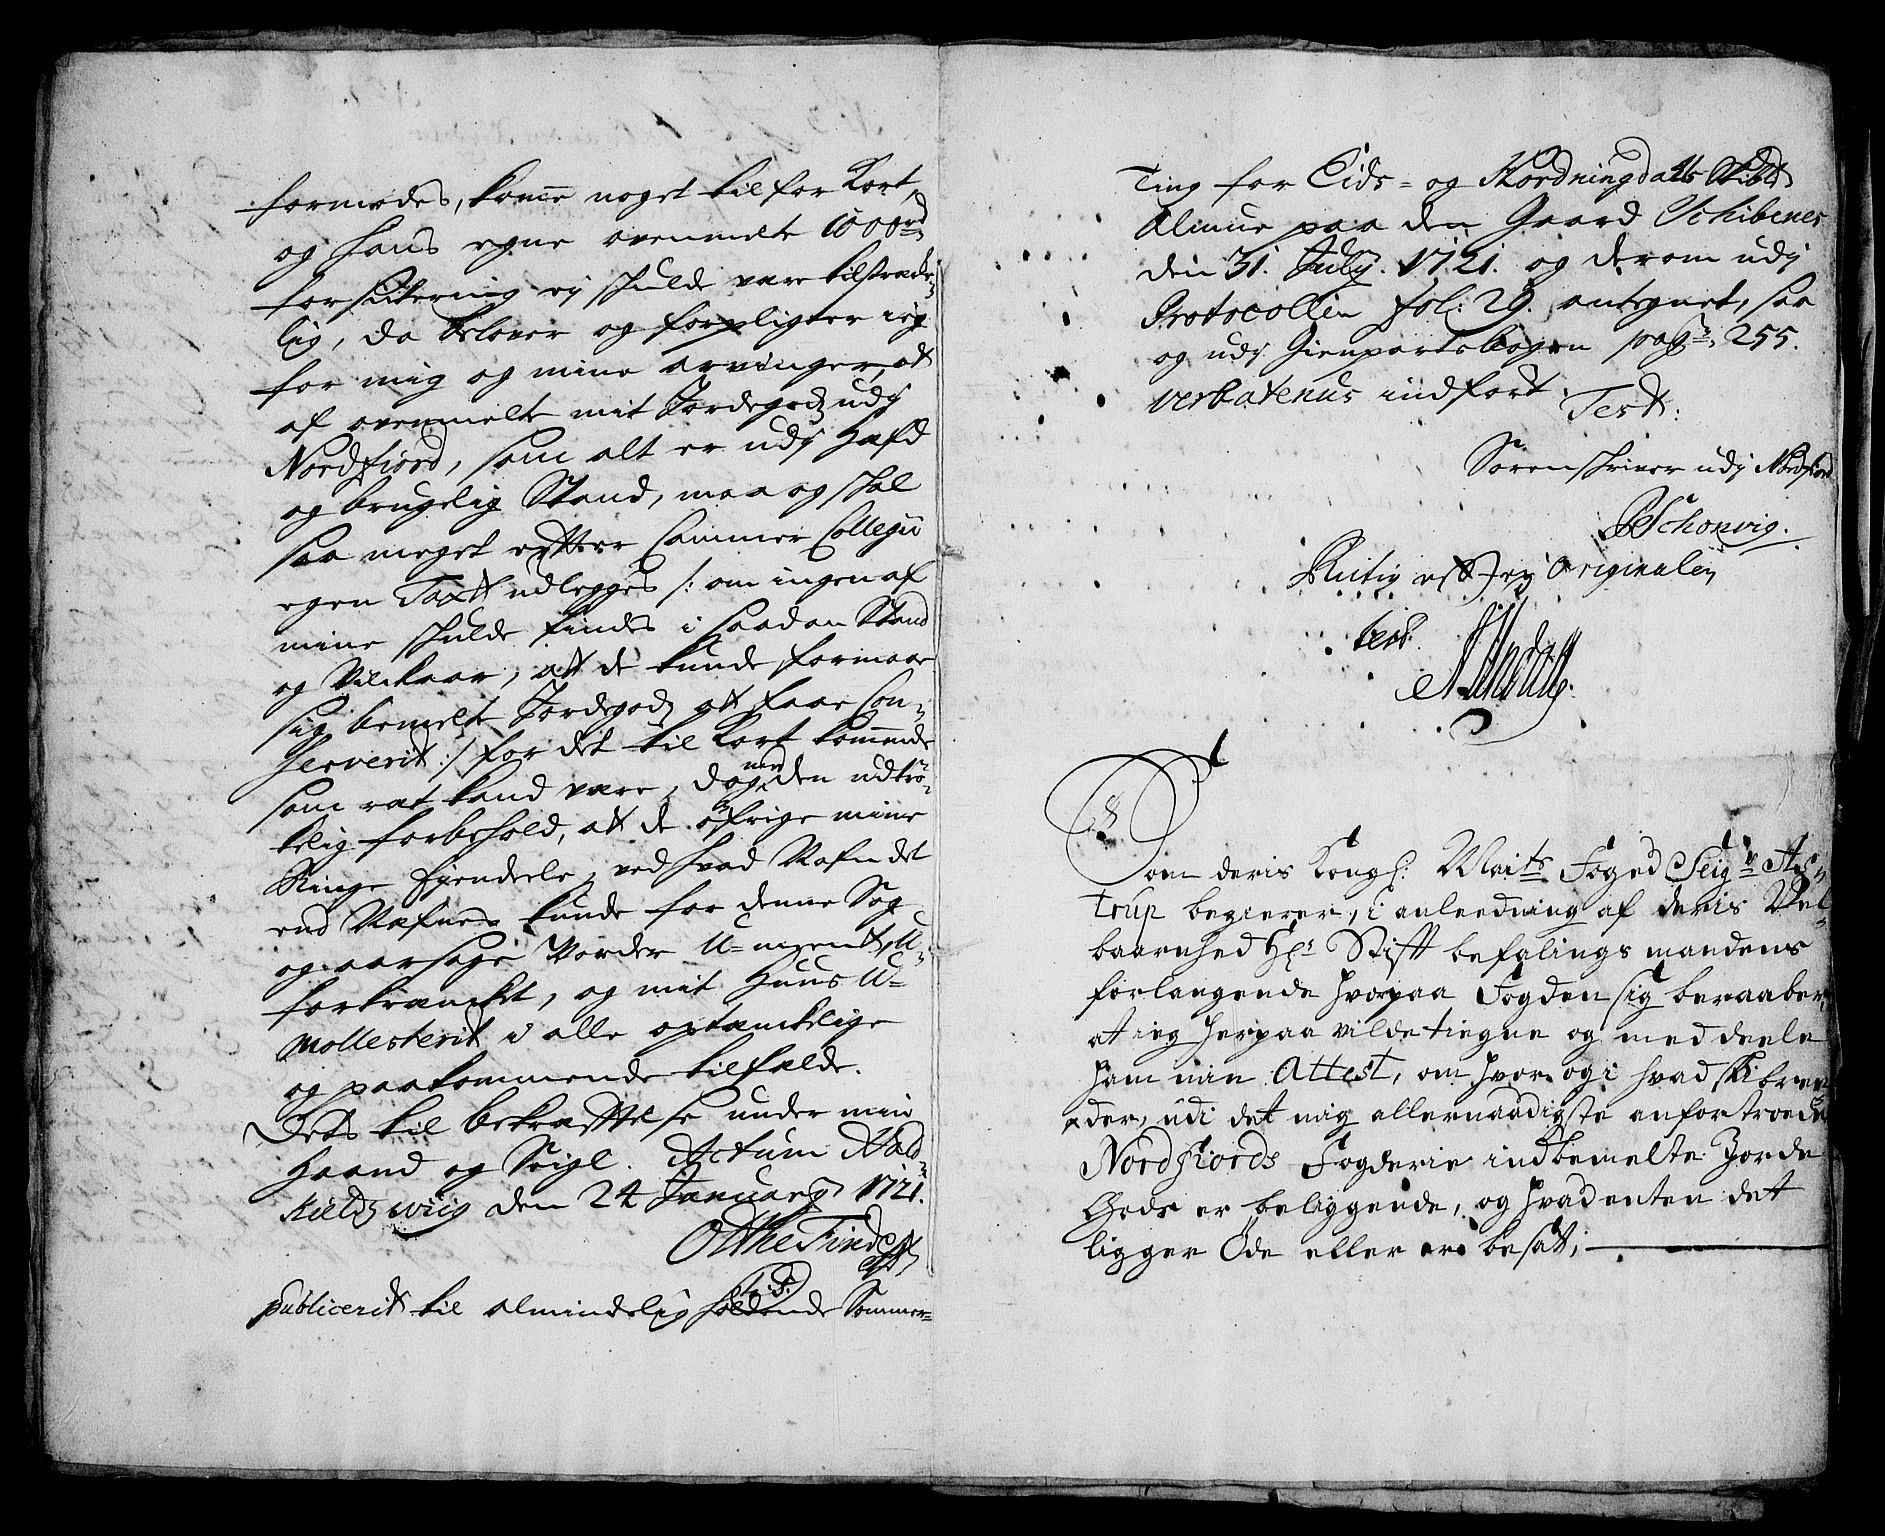 formodes, komme noget til for Kort,
og hans egne ovenmelte 1000 rd
forsikkering ej skulde være tilstrecke-
lig, da belover og forpligter ieg
for mig og mine arvinger, at
af ovenmelte mit Jordegods udj
Nordfiord, som alt er udj Hæfd
og brugelig Stand, maa og skal
saa meget epter Cammer Collegii
egen Taxt udlegges /: om ingen af
mine skulde findes i saadan Stand
og Vilckaar, att de kunde formaae
sig bemelte Jordegods att faae Con-
serverit :/ for det til Kort kommende
som ræt kand være, dog med den udtrö-
kelig forbehold, at de öfrige mine
Ringe Ejendeele, ved hvad Nafn det
end Næfnes kunde for denne Sag
og aarsage Vorder U-molent, U-
forkrencket, og mit Huus U-
mollesterit i alle optænckelige
og paakommende tilfælde.
Dets til bekræftelse under min
Haand og Seigl. Actum Wad-
kieldswiig den 24 January 1721.
Otthe Finde
L.S.
publicerit til almindelig holdende Sommer-
Ting for Eids- og Hordningdals Skibbr
Almue paa den Gaard Schibenes
den 31. July. 1721. og derom udj
Protocollen fol: 29. antegnet, saa
og udj Gienpartsbogen pag: 255.
verbatenus indfört.
Test:
Sorenskriver udj Nordfiord
Schonvig.
Rigtig efter Originalen
test.
Som deris Kongl: Maits Foged Seigr As-
trup begierer, i anleedning af deris Vel-
baarnhed Hr Stift befalings mandens
forlangende hvorpaa Fogden sig beraaber
at ieg herpaa vilde tiegne og meddeele
ham min Attest, om hvor og i hvad skibree-
der, udi det mig allernaadigste anfortroede
Nordfiords Fogderie indbemelte Jorde
Gods er beliggende, og hvad enten det
ligger Öde eller er besat;